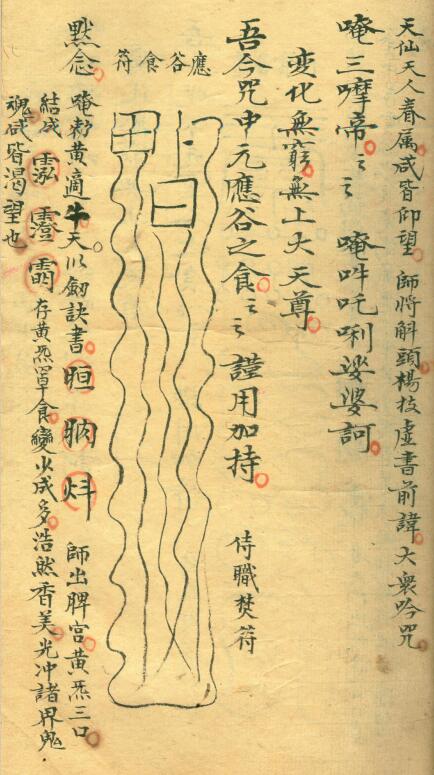 天仙天人眷属咸皆仰望 師將斛頭楊枝虛書前諱 大衆吟咒
唵三摩帝〻〻 唵吽吒唎娑婆訶
变化無窮無上大天尊
吾今咒中元應谷之食〻〻 謹用加持
侍職焚符
應谷食符
默念 唵勅黄適牛天 以劒訣書
師出脾宫黄炁三口
結成
存黄炁罩食變少成多浩然香美光冲諸界鬼
魂咸皆渴望也